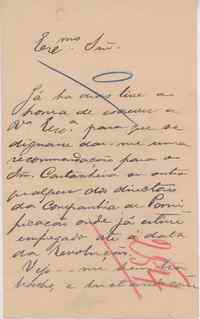 Exmo. Snr.
Já ha dias tive a
honra de escrever a
Va Exca. para que se
dignasse dar-me uma
recommendação para o
Snr. Castanheira ou outro
qualquer dos directores
da Companhia de Pani-
ficação onde já estive
empregado até á data
da Revolução.
Vejo-me sem